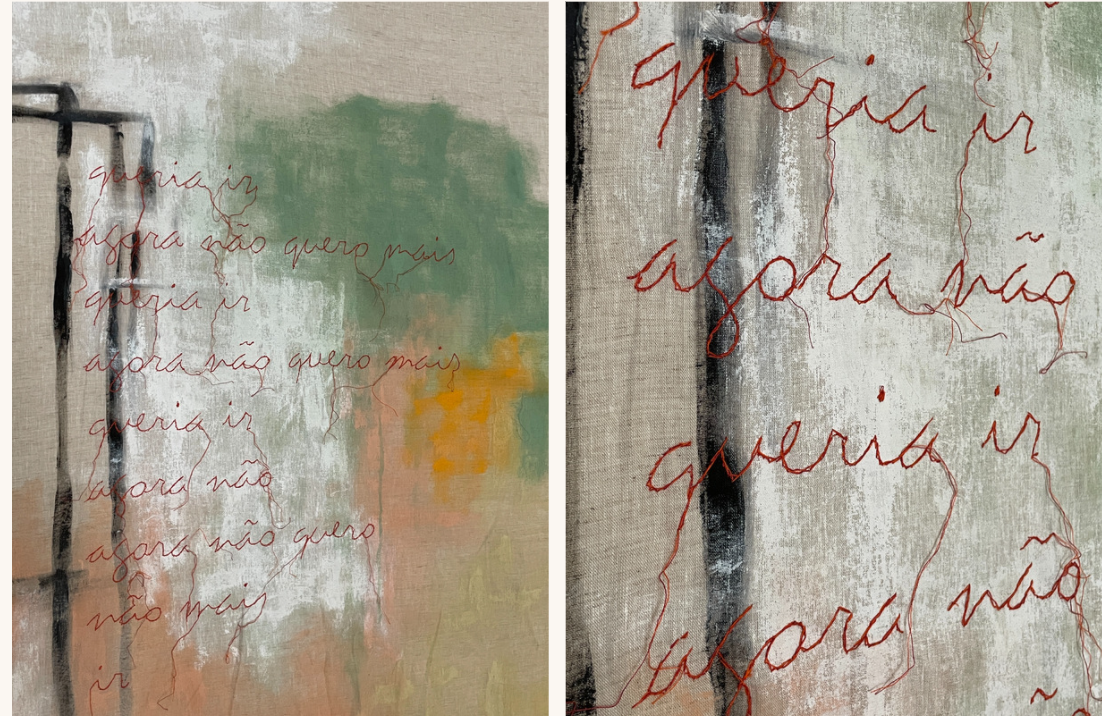 queria ir
agora não quero mais
queria ir
agora não quero mais
queria ir
agora não
agora não quero
não mais
ir
queria ir
agora não
queria ir
agora não